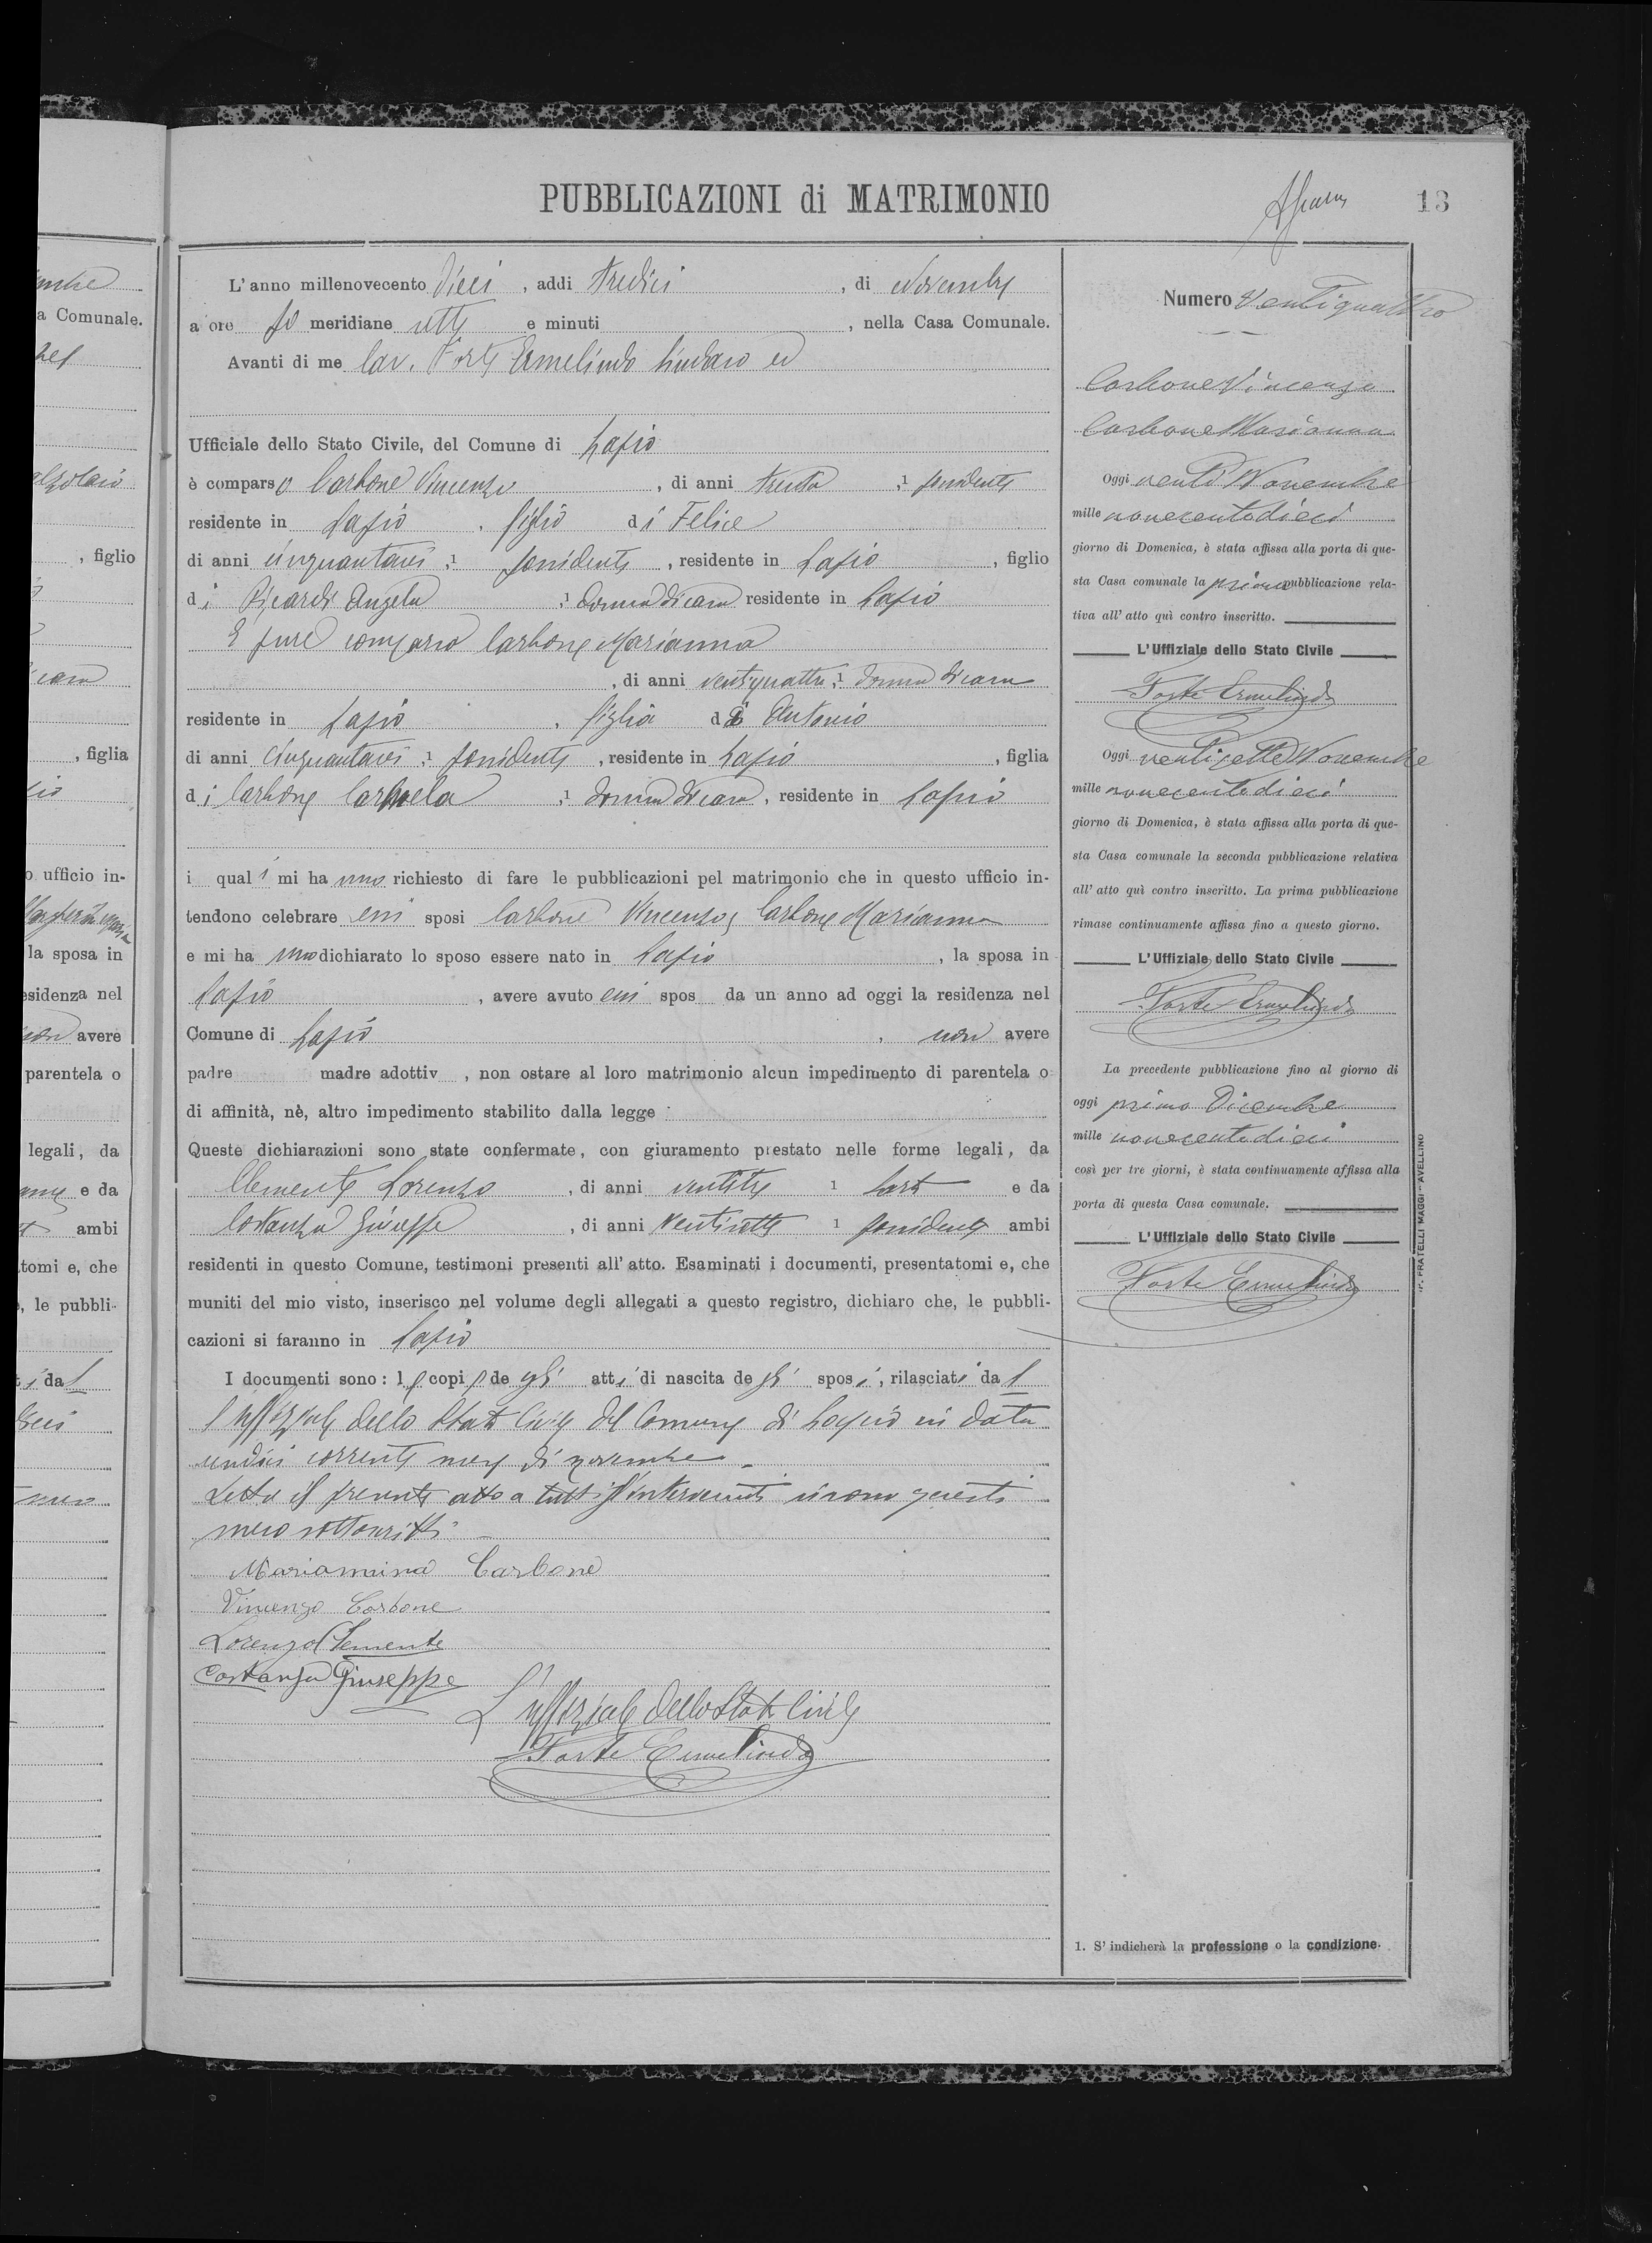 PUBBLICAZIONI di MATRIMONIO
13
L'anno millenovecento dieci, addi tredici, di Novembre
a ore po meridiane sette e minuti , nella Casa Comunale.
Avanti di me Cav. Forte Ermelindo Sindaco ed
Ufficiale dello Stato Civile, del Comune di Lapio
è comparso Carbone Vincenzo, di anni trenta, 1 possidente
residente in Lapio, figlio di Felice
di anni cinquantasei, 1 possidente, residente in Lapio, figlio
di Picardi Angela, 1 donna di casa residente in Lapio
E pure comparsa Carbone Marianna
, di anni ventiquattro, 1 donna di casa
residente in Lapio, figlia di Antonio
di anni cinquantasei, 1 possidente, residente in Lapio, figlia
di Carbone Carmela, 1 donna di casa, residente in Lapio
i quali mi hanno richiesto di fare le pubblicazioni pel matrimonio che in questo ufficio in-
tendono celebrare essi sposi Carbone Vincenzo e Carbone Marianna
e mi hanno dichiarato lo sposo essere nato in Lapio, la sposa in
Lapio, avere avuto essi spos da un anno ad oggi la residenza nel
Comune di Lapio, non avere
padre madre adottiv , non ostare al loro matrimonio alcun impedimento di parentela o
di affinità, nè, altro impedimento stabilito dalla legge
Queste dichiarazioni sono state confermate, con giuramento prestato nelle forme legali, da
Clemente Lorenzo, di anni ventitre 1 sarto e da
Costanza Giuseppe, di anni ventisette 1 possidente ambi
residenti in questo Comune, testimoni presenti all'atto. Esaminati i documenti, presentatomi e, che
muniti del mio visto, inserisco nel volume degli allegati a questo registro, dichiaro che, le pubbli-
cazioni si faranno in Lapio
I documenti sono: le copie degli atti di nascita degli sposi, rilasciati dal
l'Uffiziale dello Stato Civile del Comune di Lapio in data
undici corrente mese di novembre.
Letto il presente atto a tutti gl'intervenuti si sono questi
meco sottoscritti
Mariannina Carbone
Vincenzo Carbone
Lorenzo Clemente
Costanza Giuseppe
L'uffiziale dello Stato Civile
Forte Ermelindo
Numero Ventiquattro
Carbone Vincenzo
Carbone Marianna
Oggi venti Novembre
mille novecentodieci
giorno di Domenica, è stata affissa alla porta di que-
sta Casa comunale la prima pubblicazione rela-
tiva all'atto quì contro inscritto.
L'Uffiziale dello Stato Civile
Forte Ermelindo
Oggi ventisette Novembre
mille novecentodieci
giorno di Domenica, è stata affissa alla porta di que-
sta Casa comunale la seconda pubblicazione relativa
all'atto quì contro inscritto. La prima pubblicazione
rimase continuamente affissa fino a questo giorno.
L'Uffiziale dello Stato Civile
Forte Ermelindo
La precedente pubblicazione fino al giorno di
oggi primo Dicembre
mille novecentodieci
così per tre giorni, è stata continuamente affissa alla
porta di questa Casa comunale.
L'Uffiziale dello Stato Civile
Forte Ermelindo
FRATELLI MAGGI - AVELLINO
1. S'indicherà la professione o la condizione.
a Comunale.
, figlio
, figlia
o ufficio in-
la sposa in
esidenza nel
non avere
parentela o
legali, da
e da
ambi
tomi e, che
, le pubbli-
ti dal